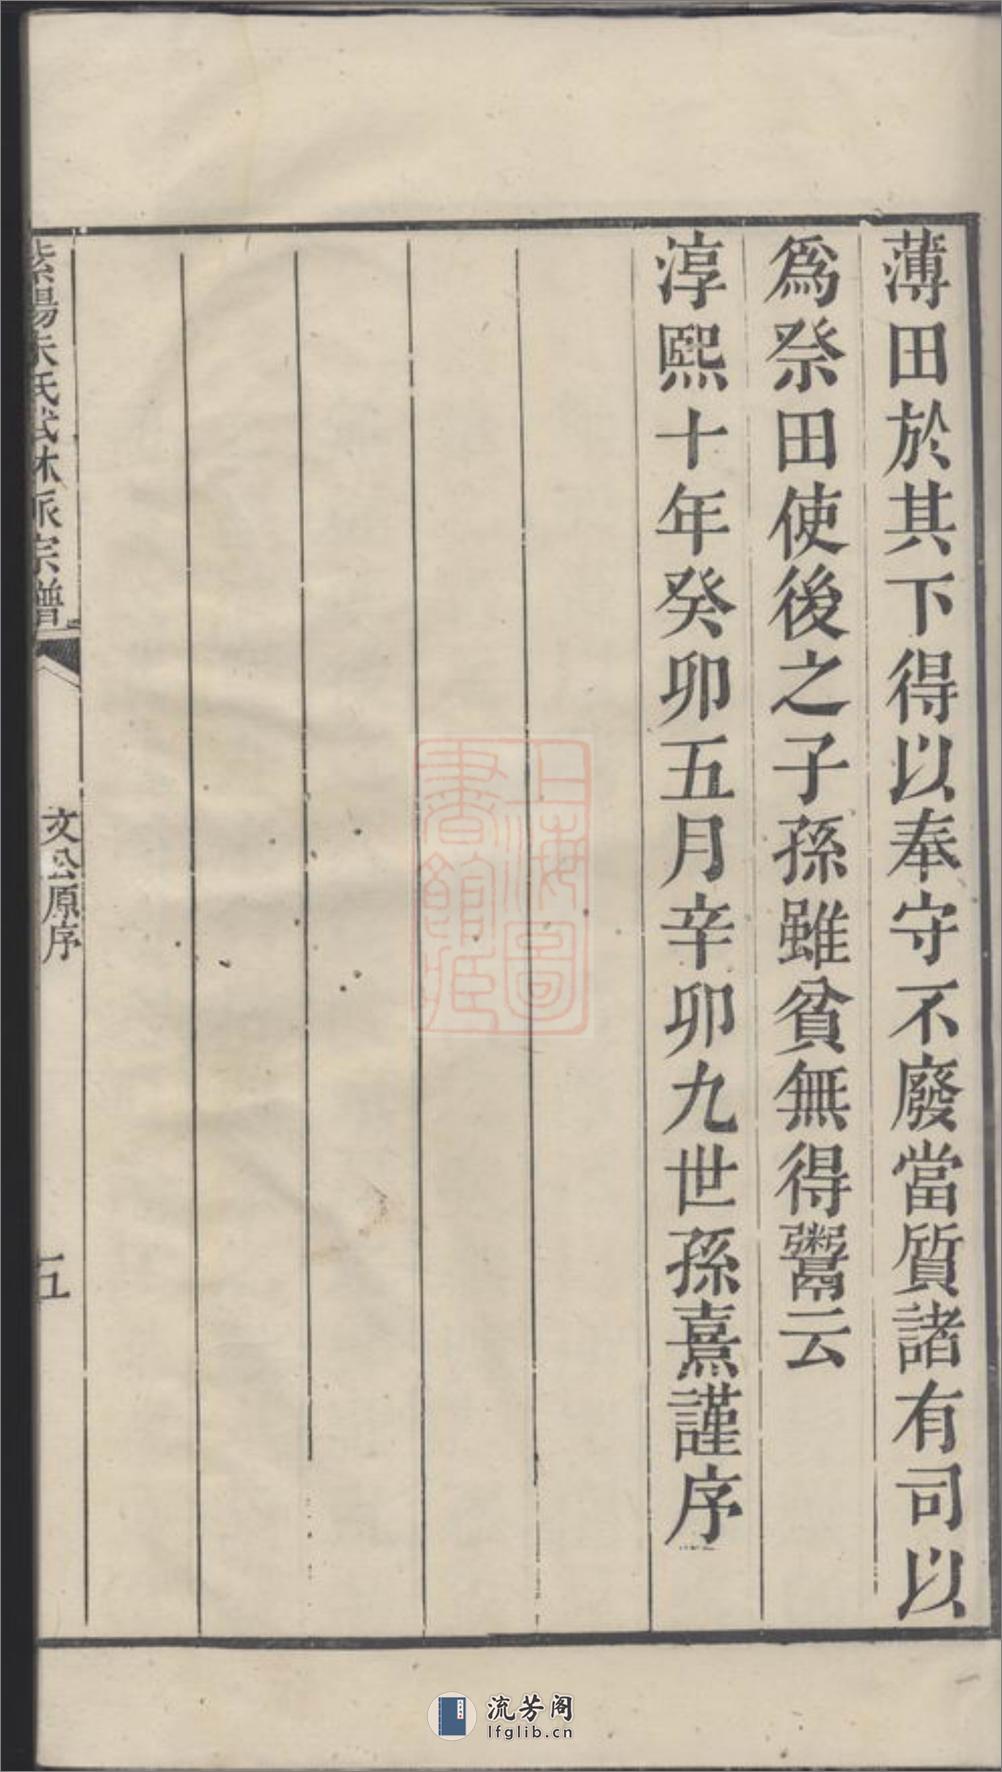 薄田於其下得以奉守不廢當質諸有司以
為祭田使後之子孫雖貧無得鬻云
淳熙十年癸卯五月辛卯九世孫熹謹序
紫陽朱氏武林派宗譜
文公原序
五
上海圖書館藏
流芳阁
lfglib.cn